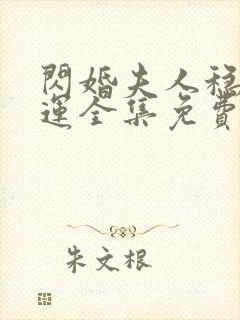 閃婚夫人穩
運全集免費
朱文根